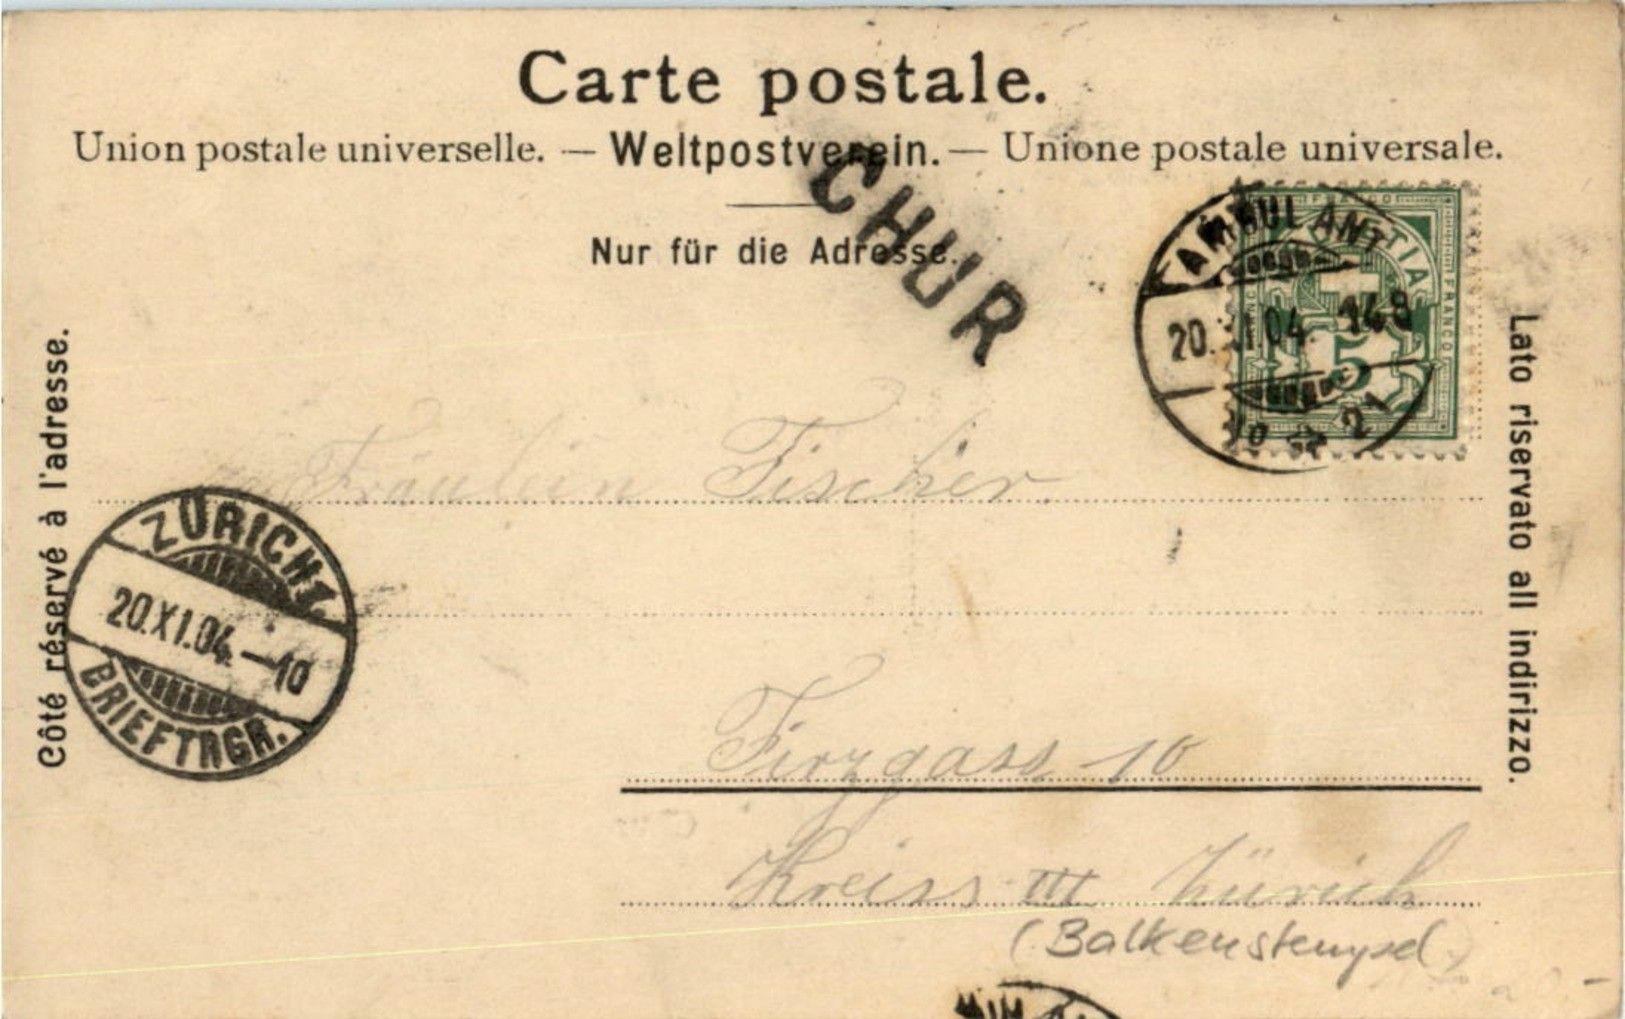 Carte postale.
Union postale universelle. — Weltpostverein. — Unione postale universale.
CHUR
Nur für die Adresse.
FRANCO
FRANCO
5
AMBULANT
20. XI. 04. 148
21
Côté réservé à l'adresse.
Lato riservato all indirizzo.
Fräulein Fischer.
ZÜRICH
20.XI.04.–10
BRIEFTRGR.
10
Kreiss III Zürich
(Balkenstempel)